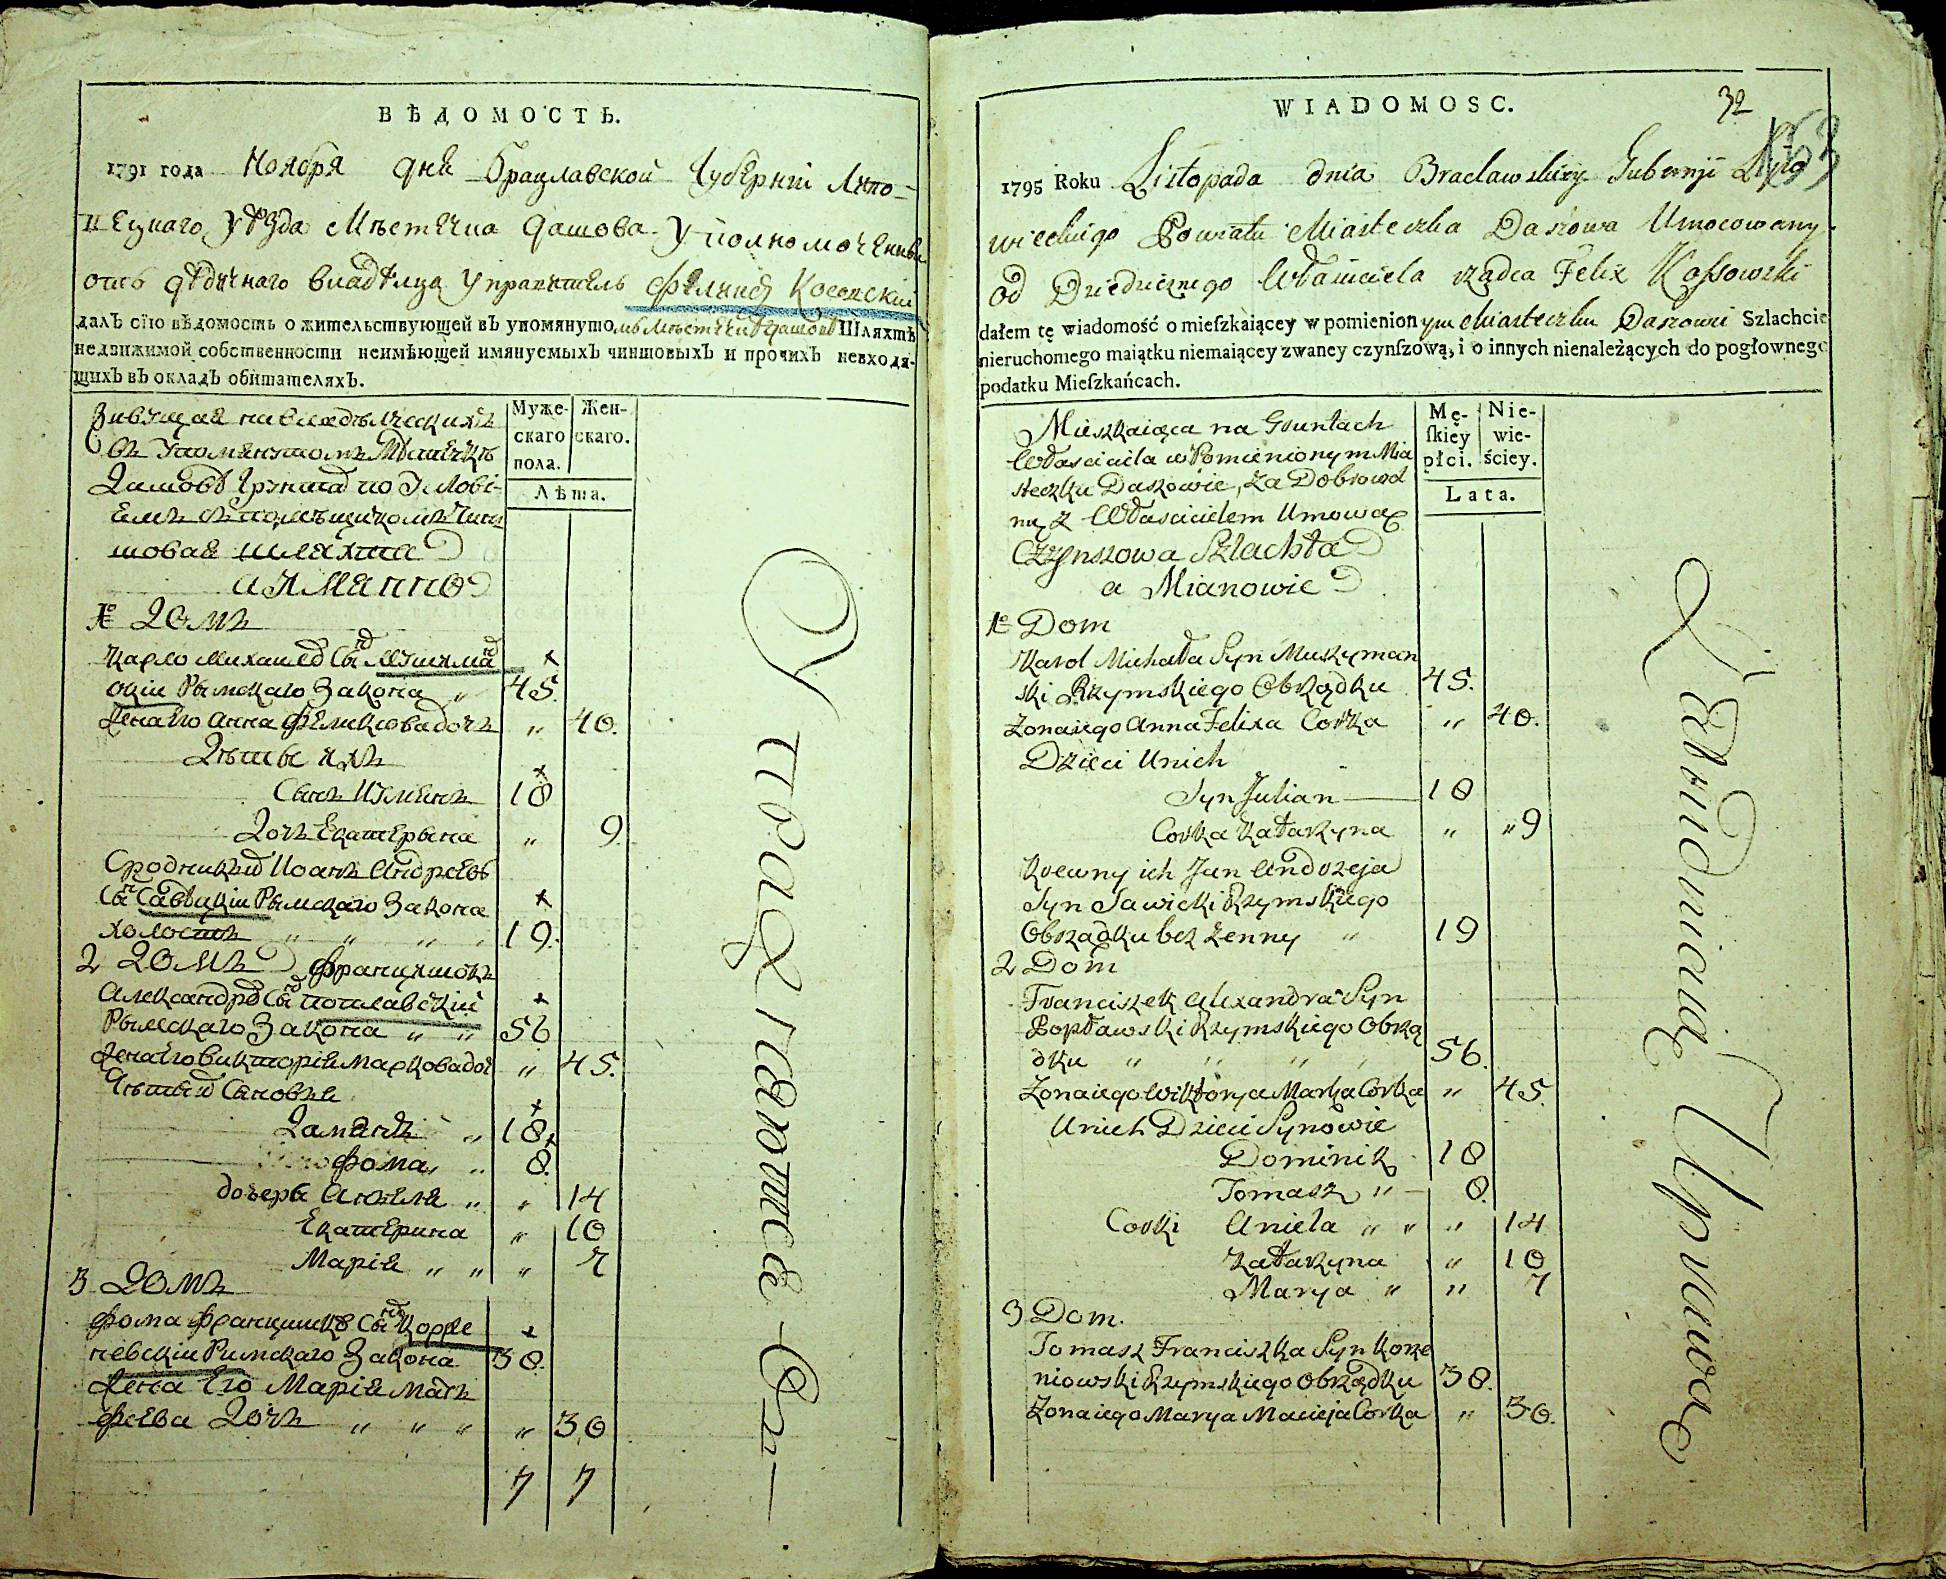 ВѢДОМОСТЬ.
1791 года Ноября дня Брацлавской Губерніи Липо-
вецкаго уѣзда Мѣстечка Дашова Уполномоченный
отъ Дѣдичнаго владѣлца Управитель Феликсъ Косовскій
далъ сїю вѣдомость о жительствующей въ упомянутомъ мѣстечкѣ Дашовѣ Шляхтѣ
недвижимой собственности неимѣющей имянуемыхъ чиншовыхъ и прочихъ невходя-
щихъ въ окладъ обитателяхъ.
Муже- Жен-
скаго скаго.
пола.
Лѣта.
Живущая на владѣлческихъ
въ упомянутомъ Мѣстечкѣ
Дашовѣ грунтахъ по Услові-
емъ съ помѣщикомъ Чин
шовая шляхта
а имянно
1e Домъ
Карло Михаила Сынъ Мушкман
скій Рымскаго Закона „ 45.
Жена его Анна Феликсова дочь „ 40.
Дѣти ихъ
Сынъ Юлианъ 18
Дочь Екатерына „ 9.
Сродникъ ихъ Иоанъ Андреевъ
Сынъ Савицкій Рымскаго Закона
холостъ „ „ „ 19.
2 Домъ Францишокъ
Александра Сынъ Поплавскій
Рымскаго Закона „ „ 56
Жена его Викторія Маркова доч „ 45.
У нихъ Сыновья
Даминикъ „ 18
Фома „ 8.
дочеры Анѣля „ „ 14
Екатерина „ 10
Марія „ „ „ 7
3 Домъ
Фома Францишка Сынъ Корже
невскій Римскаго Закона 38.
Жена Его Марія Мать
феева Дочь „ „ „ „ 30
7 7
WIADOMOSC.
32
1795 Roku Listopada dnia Bracławskiey Gubernji Lipo
wieckiego Powiatu Miasteczka Daszowa Umocowany
od Dziedzicznego Właściciela rządca Felix Kossowski
dałem tę wiadomość o mieſzkaiącey w pomienionym Miasteczku Daszowi Szlachcie
nieruchomego maiątku niemaiącey zwaney czynſzową, i o innych nienależących do pogłownego
podatku Mieſzkańcach.
Mę- Nie-
ſkiey wie-
płci. ściey.
Lata.
Mieszkaiąca na Gruntach
Własciciela w Pomienionym Mia
steczku Daszowie, za Dobrowol
ną z Włascicielem Umową
Czynszowa Szlachta
a Mianowie
1e Dom
Karol Michała Syn Muszyman
ski Rzymskiego Obrządku 45.
Zona iego Anna Felixa Corka „ 40.
Dzieci Unich
Syn Julian 18
Corka Katarzyna „ „ 9
Krewny ich Jan Andrzeja
Syn Sawicki Rzymskiego
Obrządku bez zenny „ 19
2 Dom
Franciszek Alexandra Syn
Popławski Rzymskiego Obrzą
dku „ „ „ „ 56.
Zona iego Wiktorya Marka Corka „ 45.
Unich Dzieci Synowie
Dominik 18
Tomasz „ 8.
Corki Aniela „ „ „ 14
Katarzyna „ 10
Marya „ „ 7
3 Dom.
Tomasz Franciszka Syn Korze
niowski Rzymskiego Obrządku 38.
Zona iego Marya Macieja Corka „ 30.